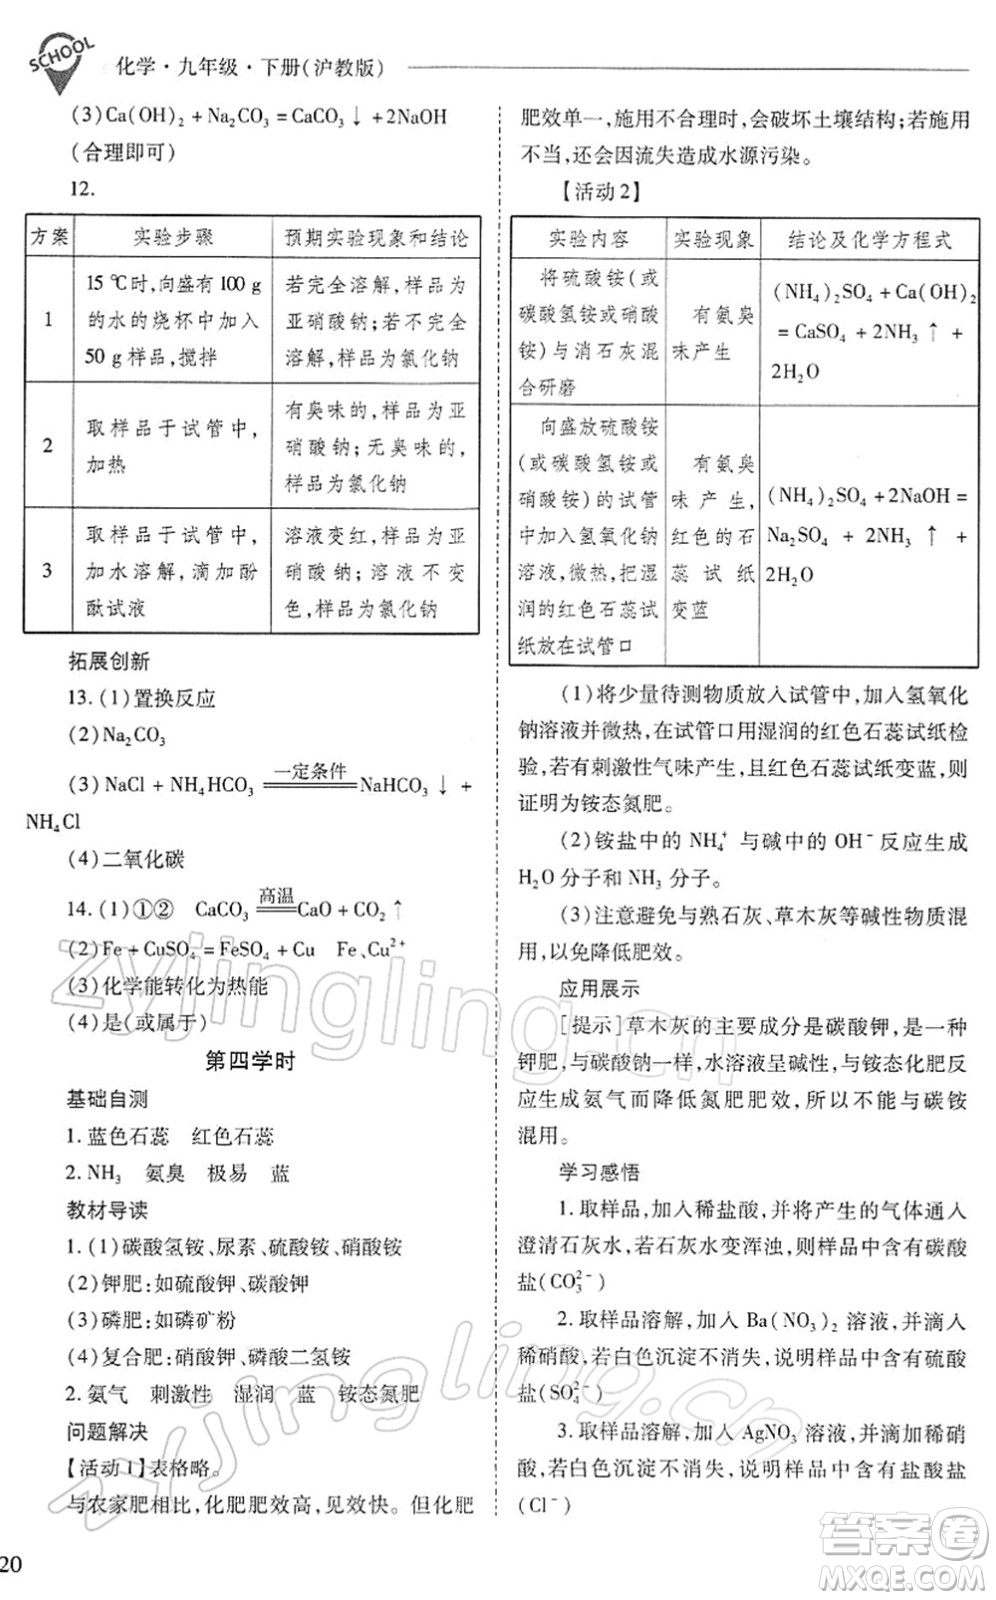 SCHOOL
化学·九年级·下册(沪教版)
(3)Ca(OH)₂ + Na₂CO₃ = CaCO₃↓ + 2NaOH
(合理即可)
12.
方案 实验步骤 预期实验现象和结论
1 15 ℃时,向盛有 100 g 的水的烧杯中加入 50 g 样品,搅拌 若完全溶解,样品为亚硝酸钠;若不完全溶解,样品为氯化钠
2 取样品于试管中,加热 有臭味的,样品为亚硝酸钠;无臭味的,样品为氯化钠
3 取样品于试管中,加水溶解,滴加酚酞试液 溶液变红,样品为亚硝酸钠;溶液不变色,样品为氯化钠
拓展创新
13. (1)置换反应
(2)Na₂CO₃
(3)NaCl + NH₄HCO₃ 一定条件 NaHCO₃↓ +
NH₄Cl
(4)二氧化碳
14. (1)①② CaCO₃ 高温 CaO + CO₂↑
(2)Fe + CuSO₄ = FeSO₄ + Cu Fe、Cu²⁺
(3)化学能转化为热能
(4)是(或属于)
第四学时
基础自测
1. 蓝色石蕊 红色石蕊
2. NH₃ 氨臭 极易 蓝
教材导读
1. (1)碳酸氢铵、尿素、硫酸铵、硝酸铵
(2)钾肥:如硫酸钾、碳酸钾
(3)磷肥:如磷矿粉
(4)复合肥:硝酸钾、磷酸二氢铵
2. 氨气 刺激性 湿润 蓝 铵态氮肥
问题解决
【活动 1】表格略。
与农家肥相比,化肥肥效高,见效快。但化肥
肥效单一,施用不合理时,会破坏土壤结构;若施用
不当,还会因流失造成水源污染。
【活动 2】
实验内容 实验现象 结论及化学方程式
将硫酸铵(或碳酸氢铵或硝酸铵)与消石灰混合研磨 有氨臭味产生 (NH₄)₂SO₄ + Ca(OH)₂ = CaSO₄ + 2NH₃↑ + 2H₂O
向盛放硫酸铵(或碳酸氢铵或硝酸铵)的试管中加入氢氧化钠溶液,微热,把湿润的红色石蕊试纸放在试管口 有氨臭味产生,红色的石蕊试纸变蓝 (NH₄)₂SO₄ + 2NaOH = Na₂SO₄ + 2NH₃↑ + 2H₂O
(1)将少量待测物质放入试管中,加入氢氧化
钠溶液并微热,在试管口用湿润的红色石蕊试纸检
验,若有刺激性气味产生,且红色石蕊试纸变蓝,则
证明为铵态氮肥。
(2)铵盐中的 NH₄⁺ 与碱中的 OH⁻ 反应生成
H₂O 分子和 NH₃ 分子。
(3)注意避免与熟石灰、草木灰等碱性物质混
用,以免降低肥效。
应用展示
[提示]草木灰的主要成分是碳酸钾,是一种
钾肥,与碳酸钠一样,水溶液呈碱性,与铵态化肥反
应生成氨气而降低氮肥肥效,所以不能与碳铵
混用。
学习感悟
1. 取样品,加入稀盐酸,并将产生的气体通入
澄清石灰水,若石灰水变浑浊,则样品中含有碳酸
盐(CO₃²⁻)
2. 取样品溶解,加入 Ba(NO₃)₂ 溶液,并滴入
稀硝酸,若白色沉淀不消失,说明样品中含有硫酸
盐(SO₄²⁻)
3. 取样品溶解,加入 AgNO₃ 溶液,并滴稀硝
酸,若白色沉淀不消失,说明样品中含有盐酸盐
(Cl⁻)
20
zyjingling.cn
zyjingling.cn
答案卷
MXQE.COM